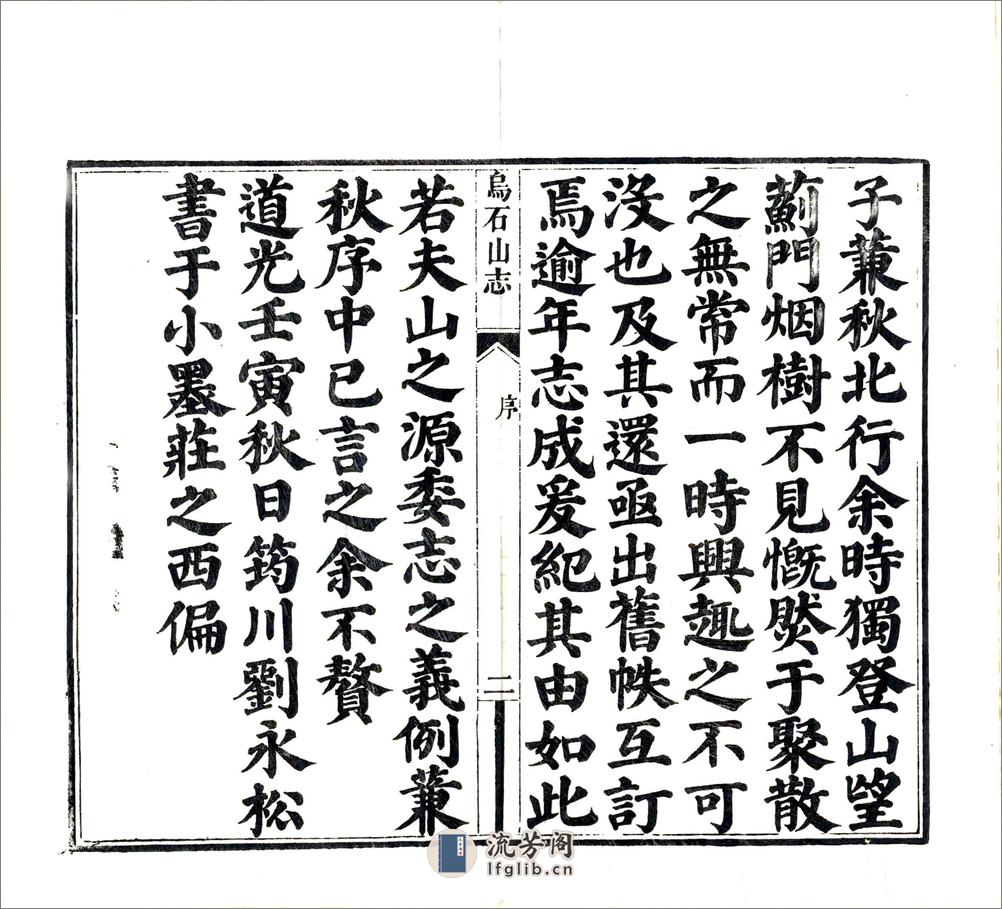 子蒹秋北行余時獨登山望
薊門烟樹不見慨然于聚散
之無常而一時興趣之不可
沒也及其還亟出舊帙互訂
焉逾年志成爰紀其由如此
烏石山志
序
二
若夫山之源委志之義例蒹
秋序中已言之余不贅
道光壬寅秋日筠川劉永松
書于小墨莊之西偏
流芳阁
lfglib.cn